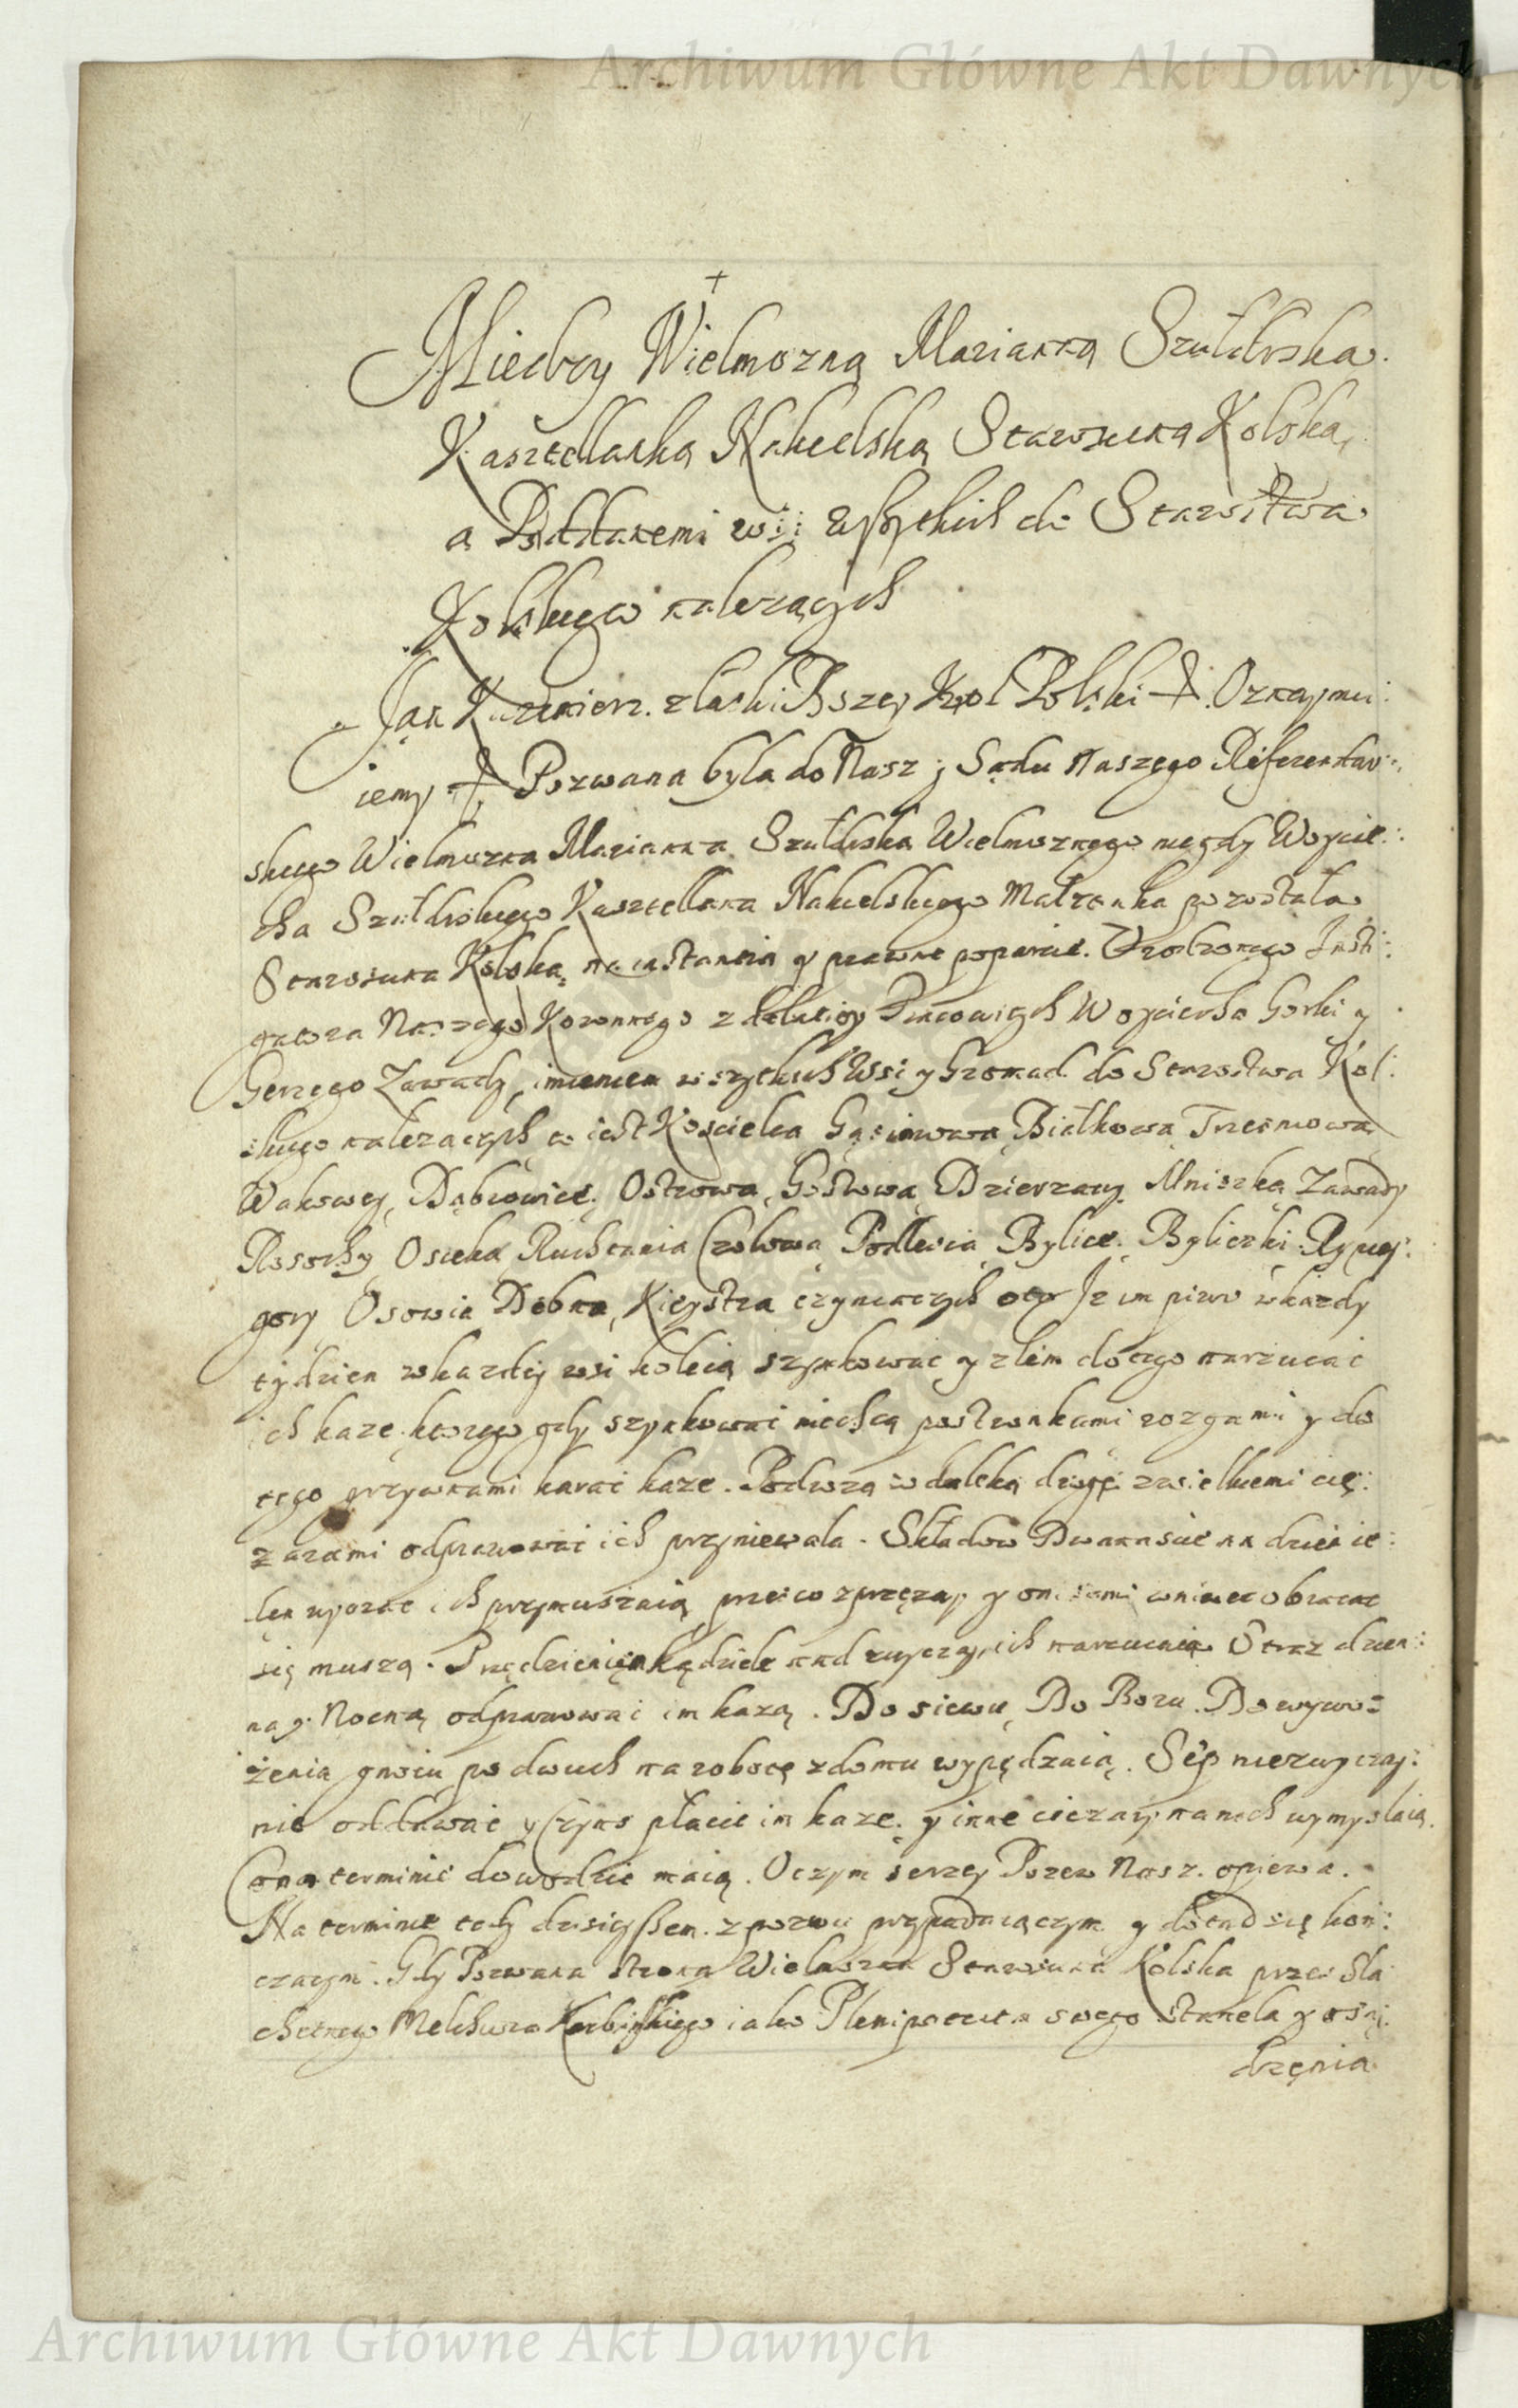 Archiwum Główne Akt Dawnych
+
Miedzy Wielmozną Marianną Szułdrską
Kasztellanką Nakielską Starosciną Kolską
a Poddanemi wsi wszytkich do Starostwa
Kolskiego nalezących
Jan Kazimierz z łaski Bozey Krol Polski &. Oznaymu:
iemy & Pozwana była do Nasz y Sądu Naszego Referendar:
skiego Wielmozna Marianna Szułdrska Wielmoznego niegdy Woycie:
cha Szułdrskiego Kasztellana Nakielskiego Małzonka pozostała
Starościna Kolska, na instantią y prawne poparcie Urodzonego Insti:
gatora Naszego Koronnego z delatiey Pracowitych Woyciecha Gorki y
Gerzego Zawady, imieniem wszytkich Wsi y Gromad do Starostwa Kol:
skiego nalezących to iest Koscielca Gąsiorowa Białkowa Trzesniowa
Wakowey, Dąbrowice, Ostrowa, Gostowa Dzierzawy Mniszka Zawady
Rosochy Osieka Ruchenia Czołowa Podlesia Bylice. Byliczki
gory Osowia Dębna, Kieystra czyniących oto Iz im piwo w kazdy
tydzien w kazdey wsi koleią szynkować y złem do tego narzucać
ich kaze ktorego gdy szynkować niechcą postronkami rozgami y do
tego grzywnami karać kaze. Podwzą w daleką drogę z wielkiemi cię:
zarami odprawować ich przyniewala. Składow Dwanascie na dzień ie:
się muszą. Przędzienią kądziele nad zwyczay ich narzucaią Straz dzien:
ną y Nocną odprawować im kazą. Do siewu, Do Boru. Do wywo:
żenia gnoiu po dwuch na robotę z domu wypędzaią. Sep niezwyczay:
nie oddawać y Czynsz płacić im kaze. y inne ciezary na nich wymyslaią.
Co na terminie dowodzić maią. O czym szerzey Pozew Nasz. opiewa.
Na terminie tedy dzisieyszem z pozwu przypadaiącym y dotąd się koń:
czącym. Gdy Pozwana strona Wielmozna Starościna Kolska przez Sla
chetnego Melchiora iako Plenipotenta swego stanęła y osą:
dzęnia
Archiwum Główne Akt Dawnych